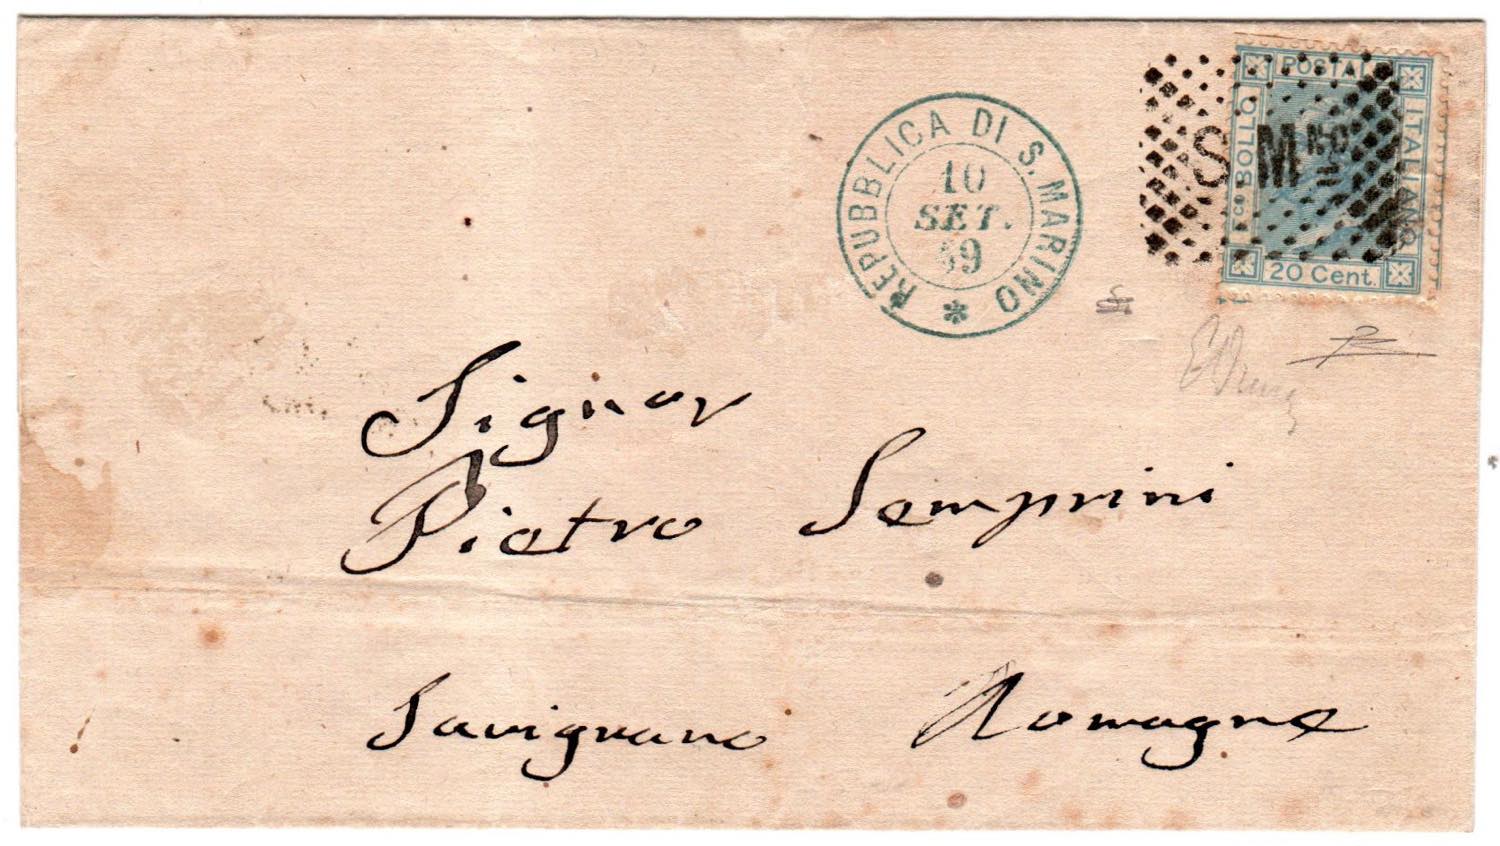 REPUBBLICA DI S. MARINO
10
SET.
69
F.CO BOLLO POSTALE ITALIANO
20 Cent.
S MNO
Signor
Pietro Semprini
Savignano Romagne